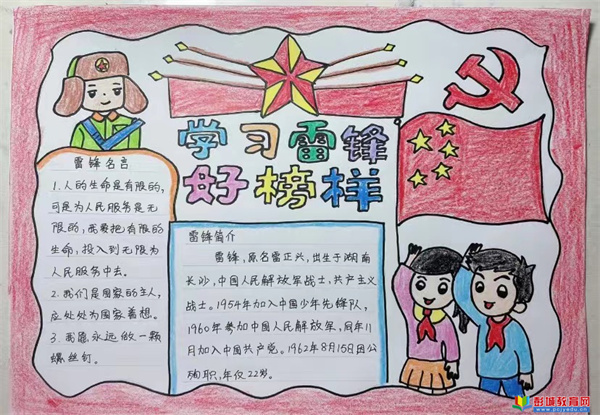 学习雷锋
好榜样
雷锋名言
1.人的生命是有限的,
可是为人民服务是无
限的,我要把有限的
生命,投入到无限为
人民服务中去。
2.我们是国家的主人,
应处处为国家着想。
3.我愿永远做一颗
螺丝钉。
雷锋简介
雷锋,原名雷正兴,出生于湖南
长沙,中国人民解放军战士,共产主义
战士。1954年加入中国少年先锋队,
1960年参加中国人民解放军,同年11
月加入中国共产党。1962年8月15日因公
殉职,年仅22岁。
彭城教育网
pcjyedu.cn